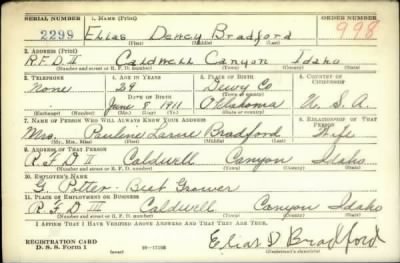 SERIAL NUMBER 1. NAME (Print) ORDER NUMBER
2299 Elias Dewey Bradford 998
(First) (Middle) (Last)
2. ADDRESS (Print)
R.F.D. II Caldwell Canyon Idaho
(Number and street or R. F. D. number) (Town) (County) (State)
3. TELEPHONE 4. AGE IN YEARS 5. PLACE OF BIRTH 6. COUNTRY OF CITIZENSHIP
None 29 Dewy Co
DATE OF BIRTH
June 8 1911 Oklahoma U.S.A.
(Exchange) (Number) (Mo.) (Day) (Yr.) (Town or county) (State or country)
7. NAME OF PERSON WHO WILL ALWAYS KNOW YOUR ADDRESS 8. RELATIONSHIP OF THAT PERSON
Mrs. Paulene Bradford Wife
(Mr., Mrs., Miss) (First) (Middle) (Last)
9. ADDRESS OF THAT PERSON
R F D II Caldwell Canyon Idaho
(Number and street or R. F. D. number) (Town) (County) (State)
10. EMPLOYER'S NAME
G. Potter - Beet Grower
11. PLACE OF EMPLOYMENT OR BUSINESS
R F D III Caldwell Canyon Idaho
(Number and street or R. F. D. number) (Town) (County) (State)
I AFFIRM THAT I HAVE VERIFIED ABOVE ANSWERS AND THAT THEY ARE TRUE.
REGISTRATION CARD
D. S. S. Form 1 (over) Elias D Bradford
(Registrant's signature)